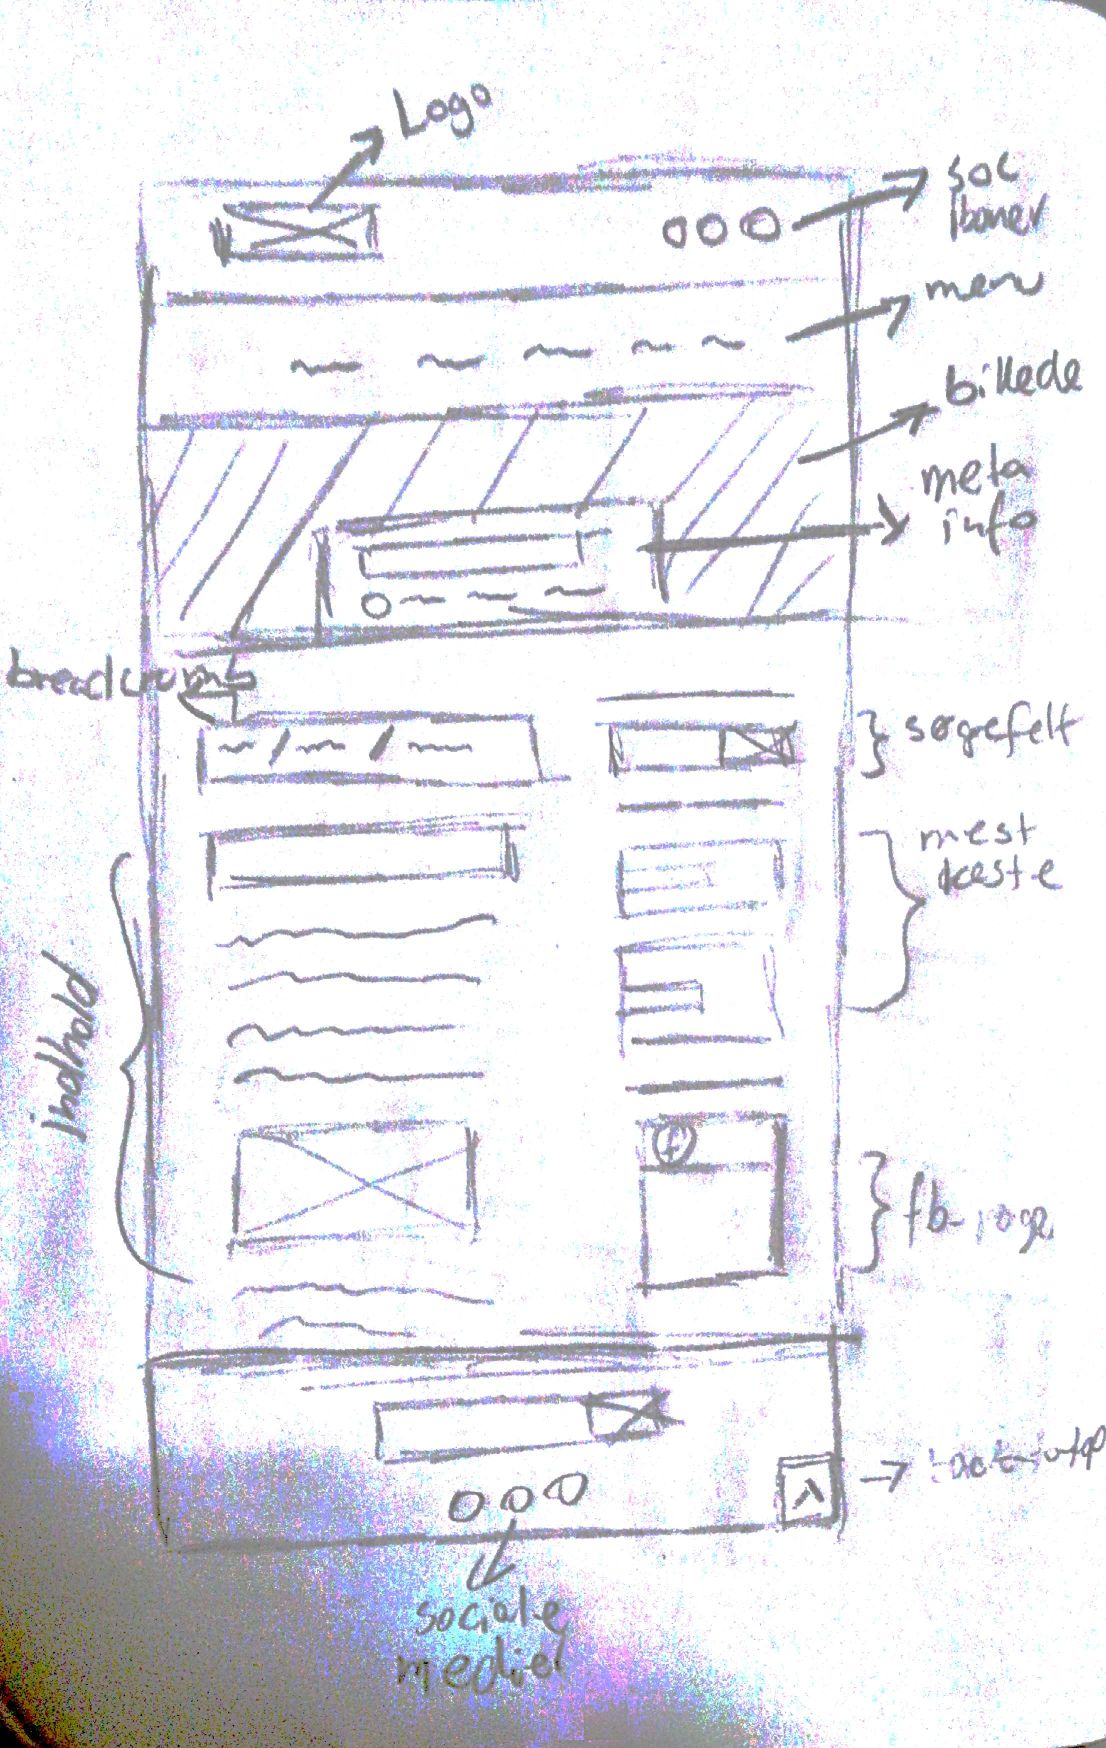 Logo
soc
Ikoner
menu
billede
meta
info
breadcrumbs
søgefelt
mest
læste
indhold
f
fb-page
sociale
medier